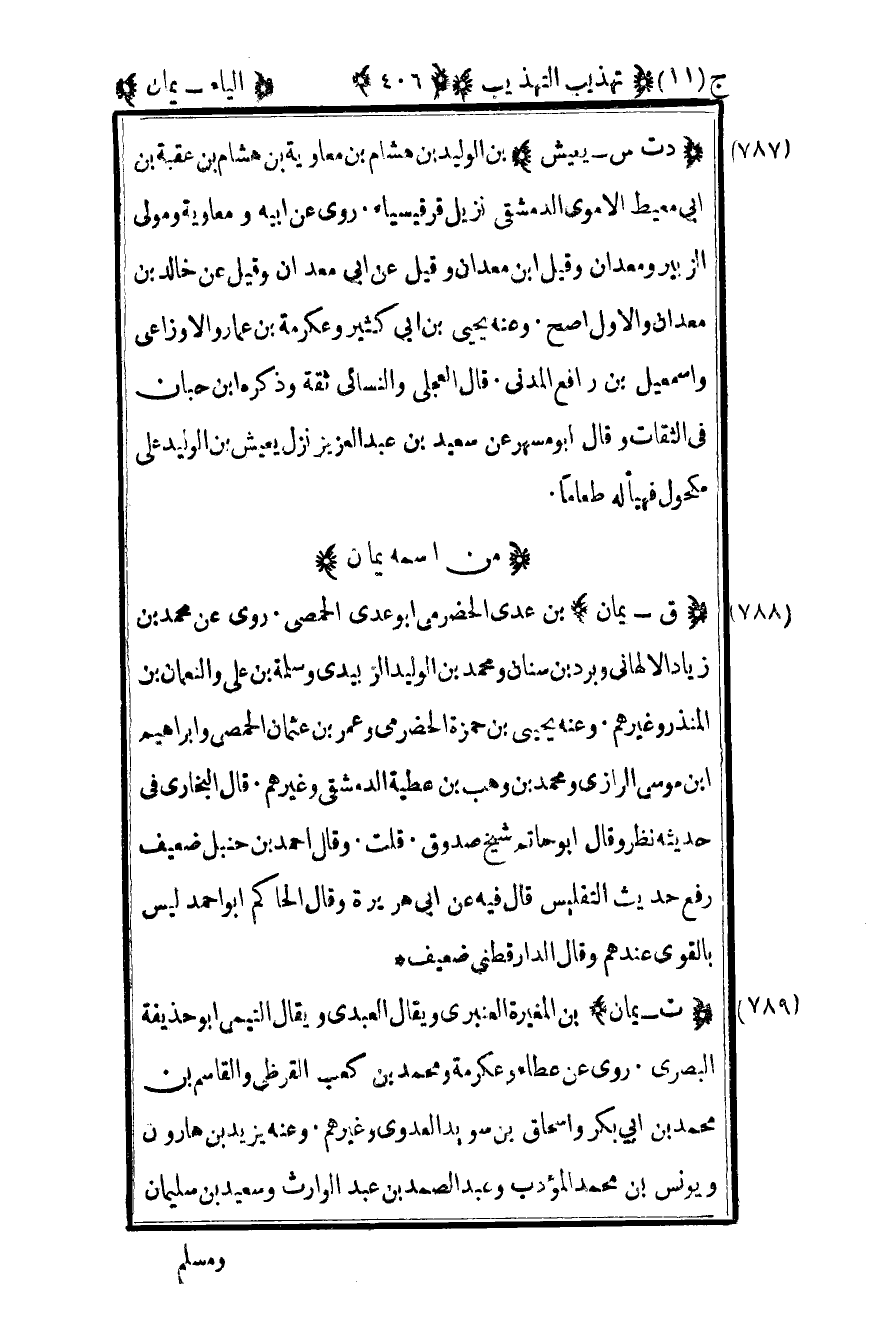 ج (١١) ﴿ تهذيب التهذيب ﴾ ﴿ ٤٠٦ ﴾ ﴿ الياء ـ يمان ﴾
(٧٨٧) ﴿ دت س ـ يعيش ﴾ بن الوليد بن هشام بن معاوية بن هشام بن عقبة بن
ابي معيط الاموى الدمشقى نزيل قرقيسياء . روى عن ابيه و معاوية ومولى
الزبير ومعدان وقيل ابن معدان و قيل عن ابي معدان وقيل عن خالد بن
معدان والاول اصح . وعنه يحيى بن ابي كثير وعكرمة بن عمار والاوزاعى
واسمعيل بن رافع المدنى . قال العجلى والنسائى ثقة وذكره ابن حبان
فى الثقات و قال ابومسهر عن سعيد بن عبدالعزيز نزل يعيش بن الوليد على
مكحول فهيأ له طعاماً .
﴿ من اسمه يمان ﴾
(٧٨٨) ﴿ ق ـ يمان ﴾ بن عدى الحضرمى ابوعدى الحمصى . روى عن محمد بن
زياد الالهانى و برد بن سنان ومحمد بن الوليد الزبيدى وسلمة بن على والنعمان بن
المنذر وغيرهم . وعنه يحيى بن حمزة الحضرمى وعمر بن عثمان الحمصى وابراهيم
ابن موسى الرازى ومحمد بن وهب بن عطية الدمشقى وغيرهم . قال البخارى فى
حديثه نظر وقال ابوحاتم شيخ صدوق . قلت . وقال احمد بن حنبل ضعيف
رفع حديث التفليس قال فيه عن ابى هريرة وقال الحاكم ابواحمد ليس
بالقوى عندهم وقال الدارقطنى ضعيف *
(٧٨٩) ﴿ ت ـ يمان ﴾ بن المغيرة العنبرى ويقال العبدى ويقال التيمى ابوحذيفة
البصرى . روى عن عطاء وعكرمة ومحمد بن كعب القرظى والقاسم بن
محمد بن ابي بكر واسحاق بن سويد العدوى وغيرهم . وعنه يزيد بن هارون
و يونس بن محمد المؤدب وعبدالصمد بن عبد الوارث وسعيد بن سليمان
ومسلم